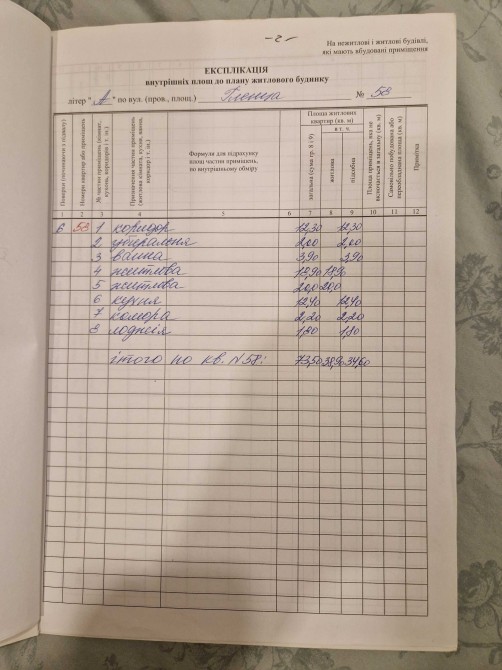 -2-
На нежитлові і житлові будівлі,
які мають вбудовані приміщення
ЕКСПЛІКАЦІЯ
внутрішніх площ до плану житлового будинку
літер " А " по вул. (пров., площ.) № 58
Поверхи (починаючи з підвалу)
Номери квартир або приміщень
№ частин приміщень (кімнат, кухонь, коридорів і т. ін.)
Призначення частин приміщень (житлова кімната, кухня, ванна, коридор і т. ін.)
Формули для підрахунку площ частин приміщень, по внутрішньому обміру
Площа житлових квартир (кв. м)
в т. ч.
загальна (сума гр. 8 і 9)
житлова
підсобна
Площа приміщень, яка не включається в загальну (кв. м)
Самовільно побудована або переобладнана площа (кв. м)
Примітка
1 2 3 4 5 6 7 8 9 10 11 12
6 53 1 коридор 12,30 12,30
2 убиральня 2,00 2,00
3 ванна 3,90 3,90
4 житлова 18,90 18,90
5 житлова 20,0 20,0
6 кухня 12,40 12,40
7 комора 2,20 2,20
8 лоджія 1,80 1,80
ітого по кв. N 58: 73,50 38,90 34,60